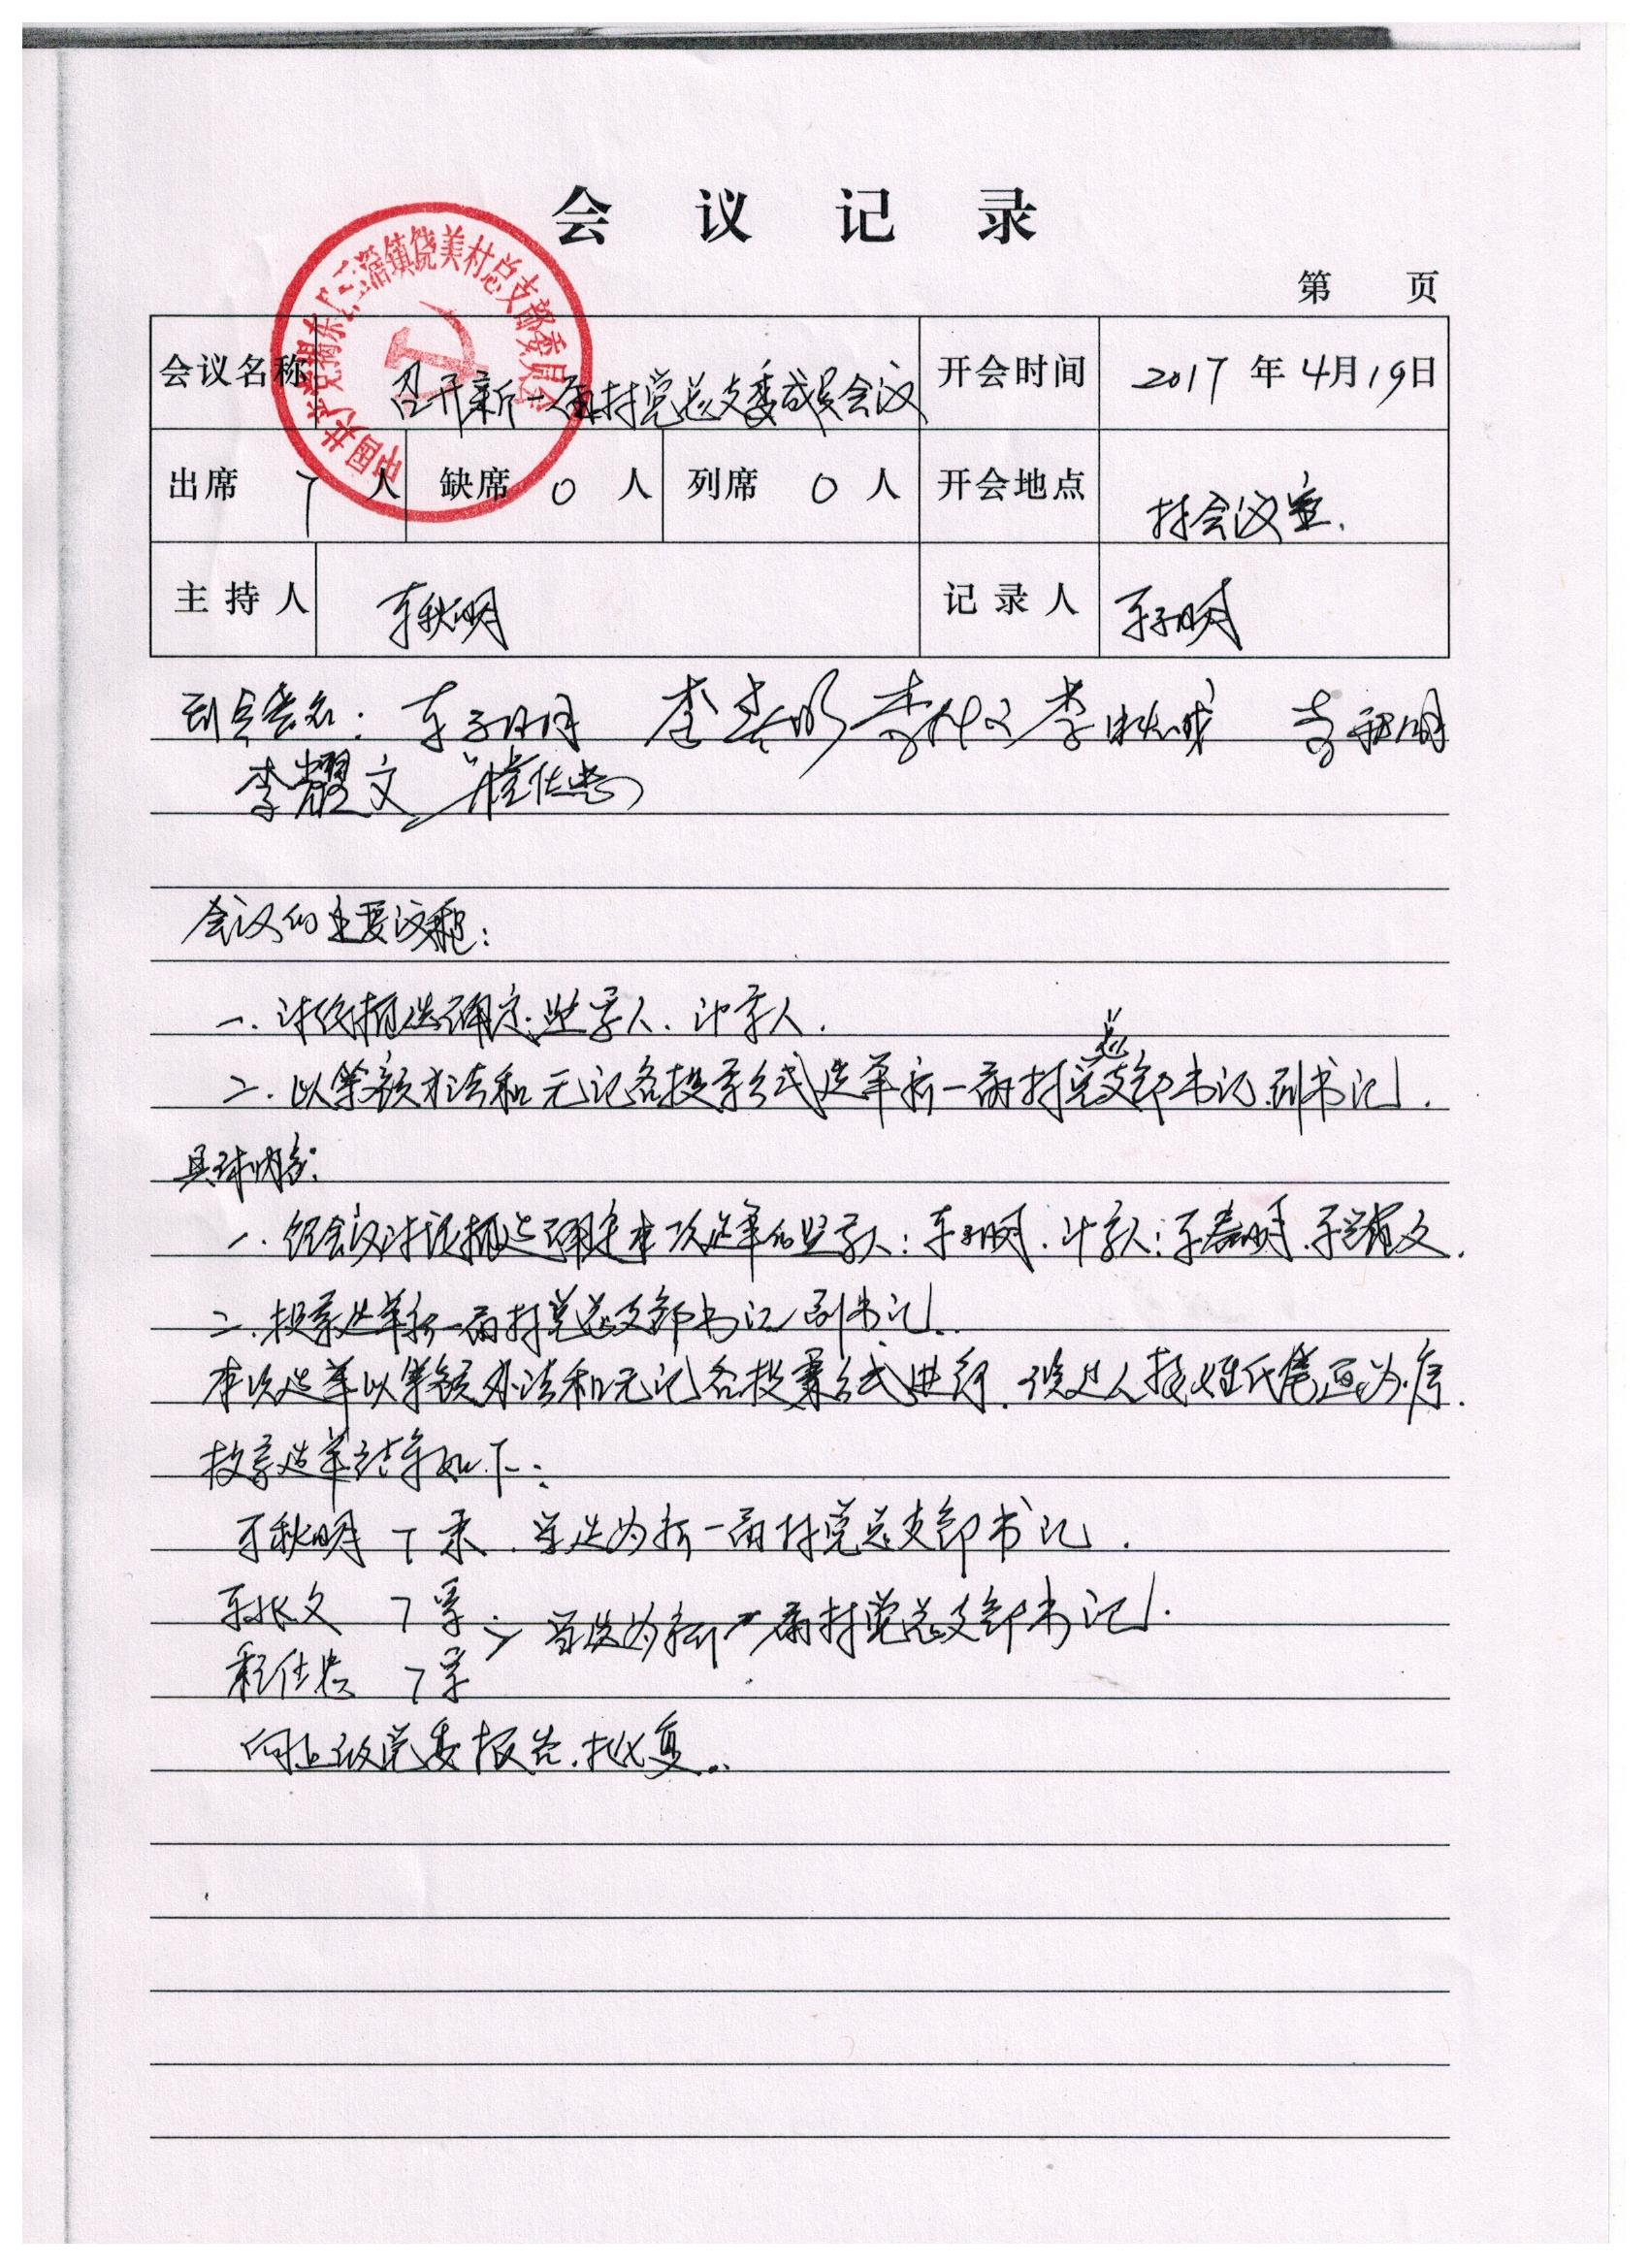 会议记录
第 页
会议名称 召开新一届村党总支委成员会议 开会时间 2017年4月19日
出席 7 人 缺席 0 人 列席 0 人 开会地点 村会议室.
主持人 李秋明 记录人 李子明
到会签名: 李子明 李春明 李 文 李 李秋明
李耀文 程仕忠
会议的主要议程:
一. 讨论推选确定监票人、计票人.
二. 以等额办法和无记名投票方式选举新一届村党总支部书记、副书记.
具体内容:
一. 经会议讨论推选确定本次选举的监票人: 李子明. 计票人: 李春明、李耀文.
二. 投票选举新一届村党总支部书记、副书记.
本次选举以等额办法和无记名投票方式进行, 候选人按姓氏笔画为序.
投票选举结果如下:
李秋明 7票. 当选为新一届村党总支部书记.
李 文 7票. 当选为新一届村党总支部 书记.
程仕忠 7票
向上级党委报告.批复..